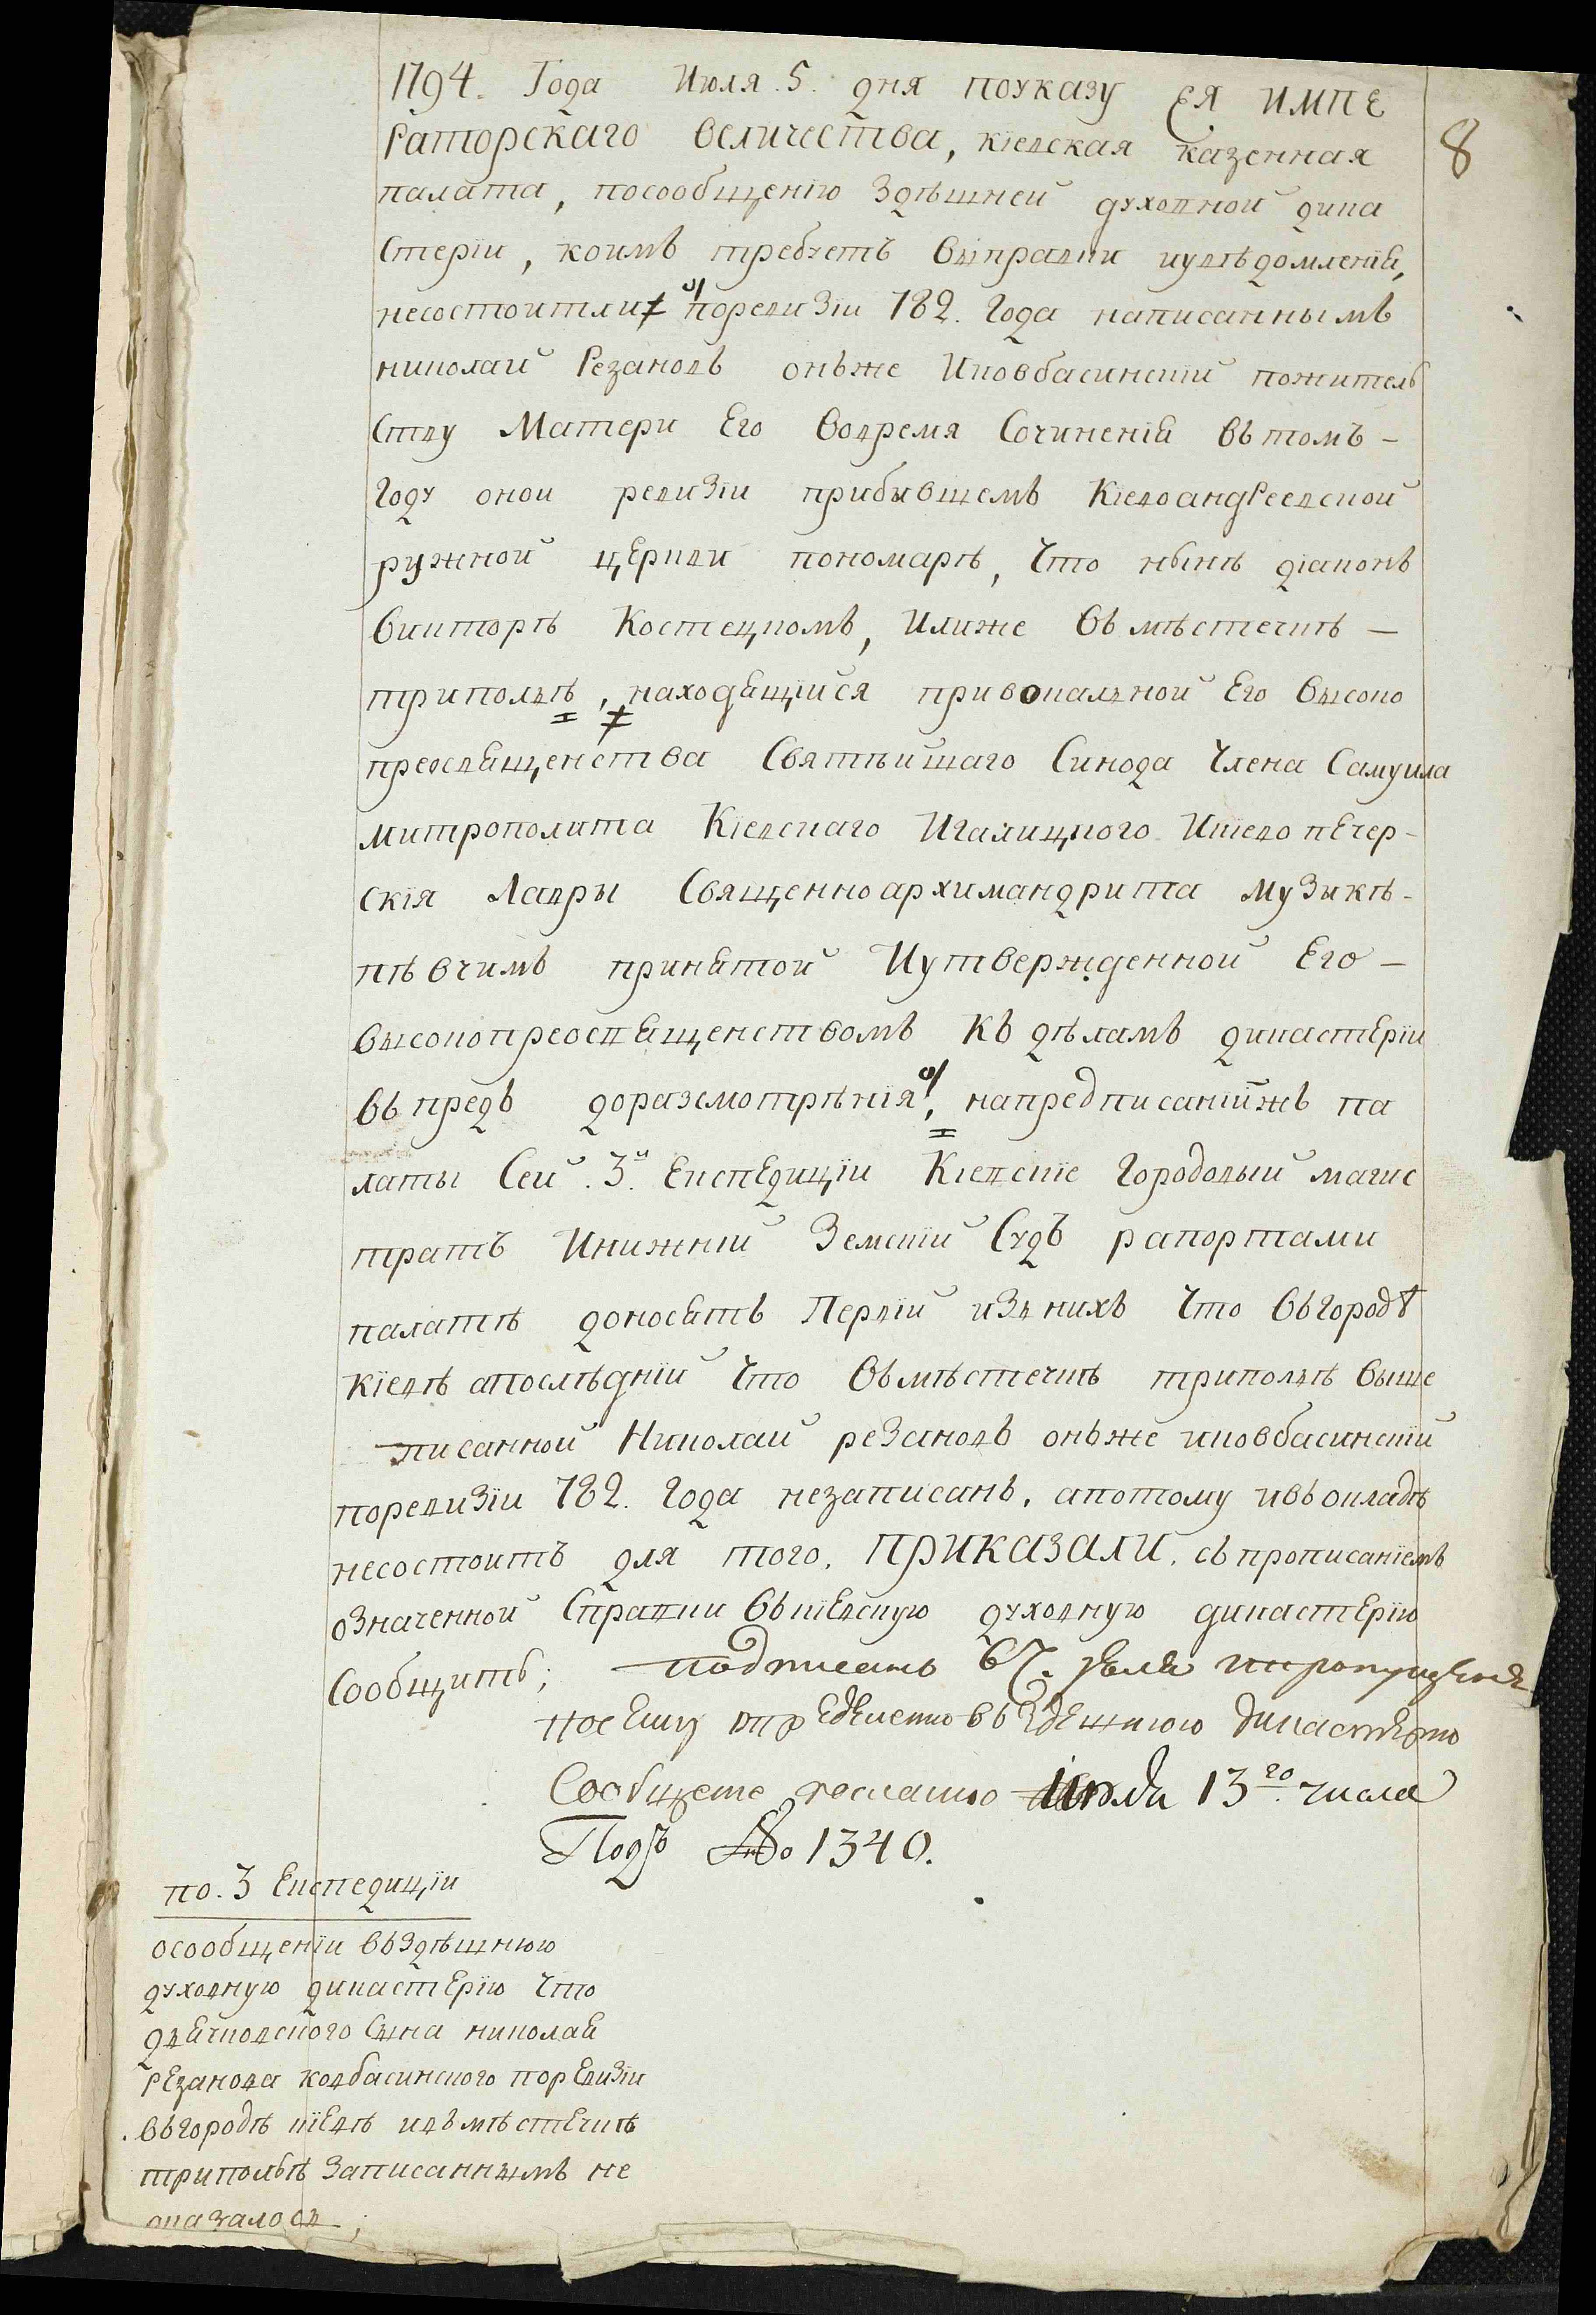 1794. Года Июля. 5. дня поуказу ея импе
раторскаго величества, кіевская казенная
палата, посообщенію здѣшней духовной дика
стеріи, коимъ требуетъ выправки иувѣдомленія,
несостоитли поревизіи 782. года написаннымъ
николай Резановъ онъже Иковбасинскій пожитель
ству Матери Его вовремя Сочиненія въ томъ –
году оной ревизіи прибывшемъ Кіевоандреевской
ружной церкви пономарѣ, что нынѣ діаконъ
викторѣ Костецкомъ, Илиже въ мѣстечкѣ –
трипольѣ, находящійся привокальной Его высоко
преосвященства Святѣйшаго Синода Члена Самуила
митрополита Кіевскаго Игалицкого Икіево печер-
скія Лавры Священноархимандрита музыкѣ -
пѣвчимъ принятой Иутвержденной Его –
высокопреосвященствомъ къ дѣламъ дикастеріи
въ предъ доразсмотрѣнія, напредписаніижъ па
латы Сей. 3й. Експедиціи Кіевскіе городовый магис
тратъ Инижній Земскій Судъ рапортами
палатѣ доносятъ Первій изъ нихъ что въгородѣ
кіевѣ апослѣдній что въмѣстечкѣ трипольѣ выше
писанной Николай резановъ онъже иковбасинскій
поревизіи 782. года незаписанъ, апотому ивъ окладѣ
несостоитъ для того, приказали, съ прописаніемъ
означенной Справки въкіевскую духовную дикастерію
Сообщить; подписанъ 67. юля ипропущеня
посему опредѣленію въ здешнюю дикастерію
Сообщене послано июля 13го. числа
Подъ №. 1340.
8
по. 3 Експедиціи
осообщеніи въздѣшнюю
духовную дикастерію что
дьячковского Сына николая
резанова ковбасинского поревизіи
въгородѣ кіевѣ ивъ мѣстечкѣ
трипольѣ записаннымъ не
оказалось;